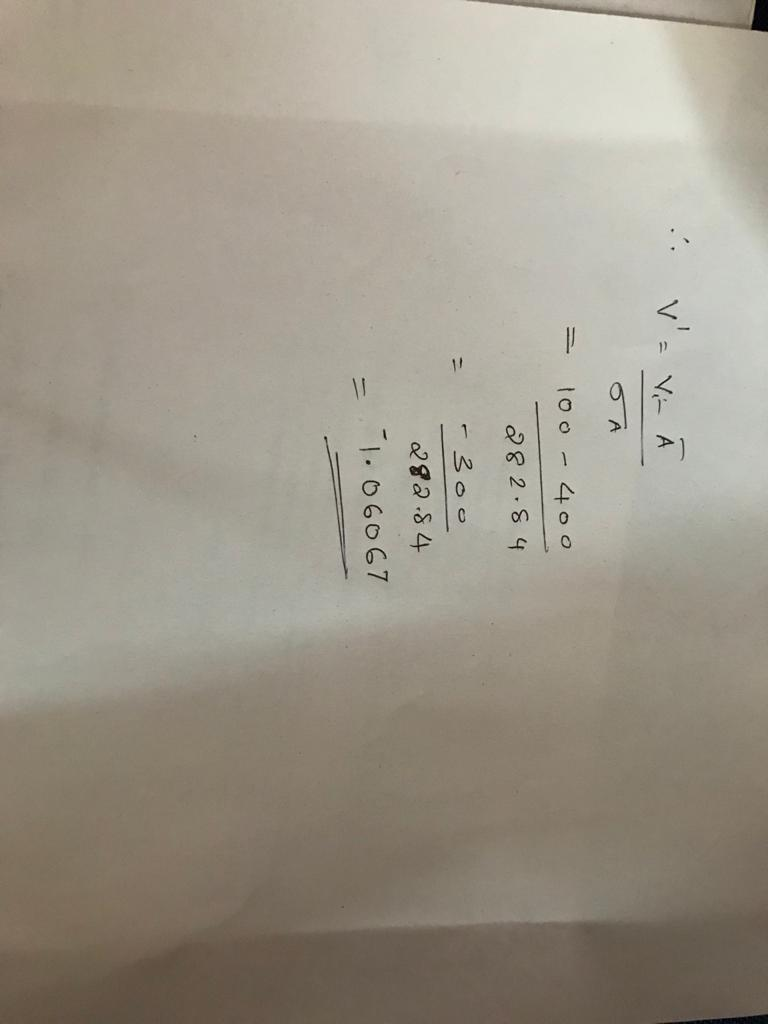 ∴ V' = Vi - Ā
σA
= 100 - 400
282.84
= -300
282.84
= -1.06067